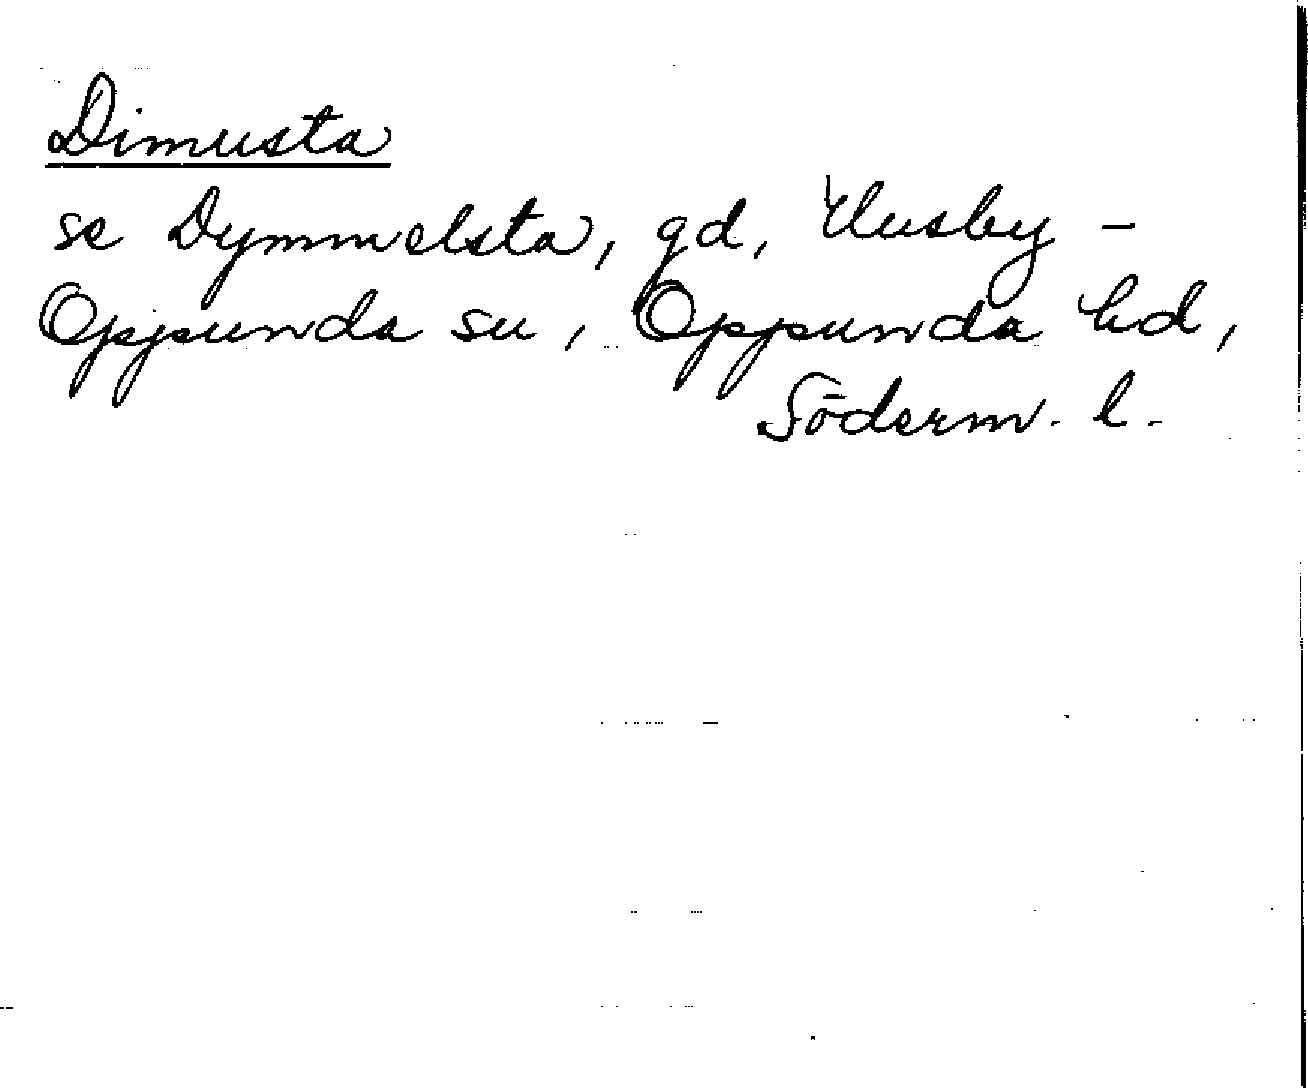 Dimusta
se Dymmelsta, gd, Husby -
Oppunda sn, Oppunda hd,
Söderm. l.